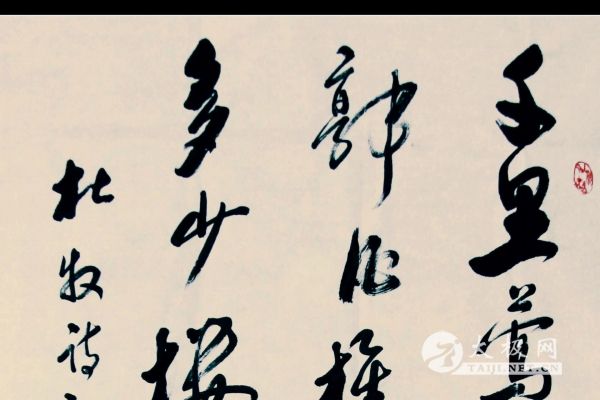 千里莺
郭酒旗
多少楼
杜牧诗
太极网
TAIJI.NET.CN